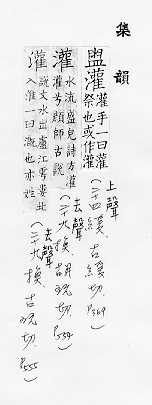 集韻
盥灌 灌手一曰灌
祭也或作灌
上聲
(二十四緩 古緩切 P.369)
灌 水流盛皃詩方灌
灌兮顏師古說
去聲
(二十九換 胡玩切 P.554)
灌 說文水出廬江雩婁北
入淮一曰溉也亦姓
去聲
(二十九換 古玩切 P.555)